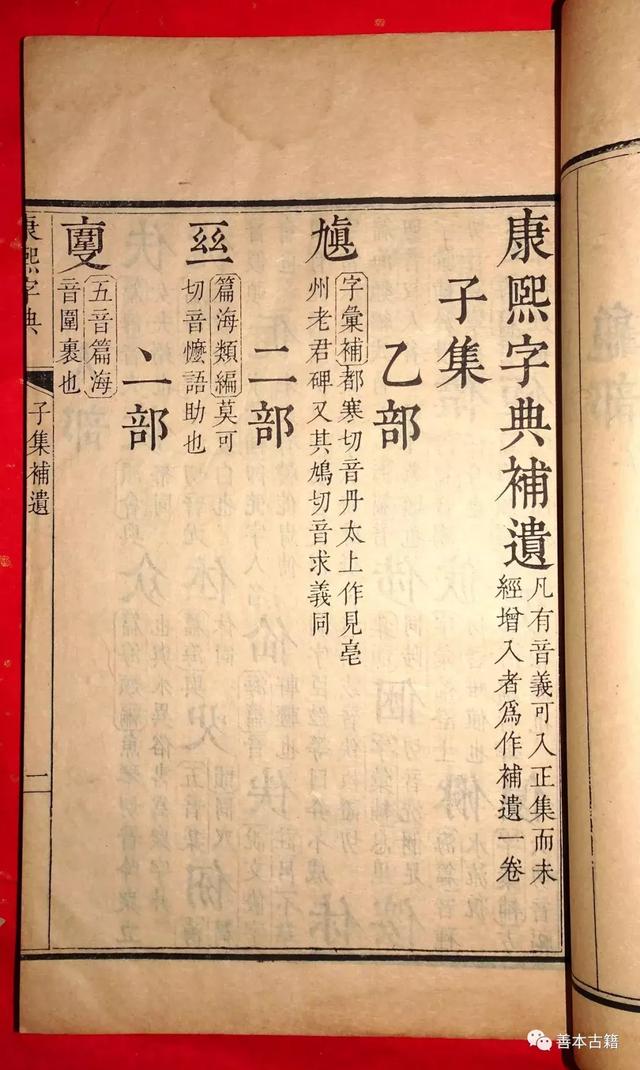 康熙字典補遺
凡有音義可入正集而未
經增入者爲作補遺一卷
子集
乙部
字彙補都寒切音丹太上作見亳
州老君碑又其鳩切音求義同
二部
篇海類編莫可
切音懡語助也
亠部
五音篇海
音圍裹也
康熙字典
子集補遺
一
善本古籍